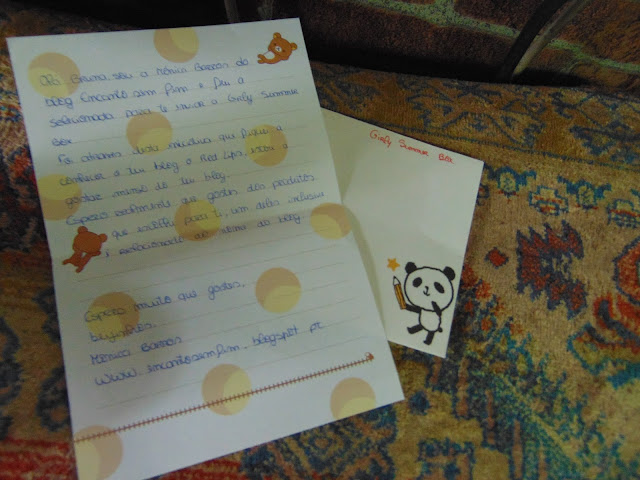 Olá Bruna, sou a Mónica Barros do
blog Encanto sem fim e fui a
selecionada para te enviar a Girly Summer
Box
Foi através desta iniciativa que fiquei a
conhecer o teu blog o Red Lips, estou a
gostar imenso do teu blog.
Espero realmente que gostes dos produtos
que escolhi para ti, um deles inclusive
é relacionado ao nome do blog
Espero muito que gostes,
beijinhos.
Mónica Barros
www.encantosemfim.blogspot.pt
Girly Summer Box